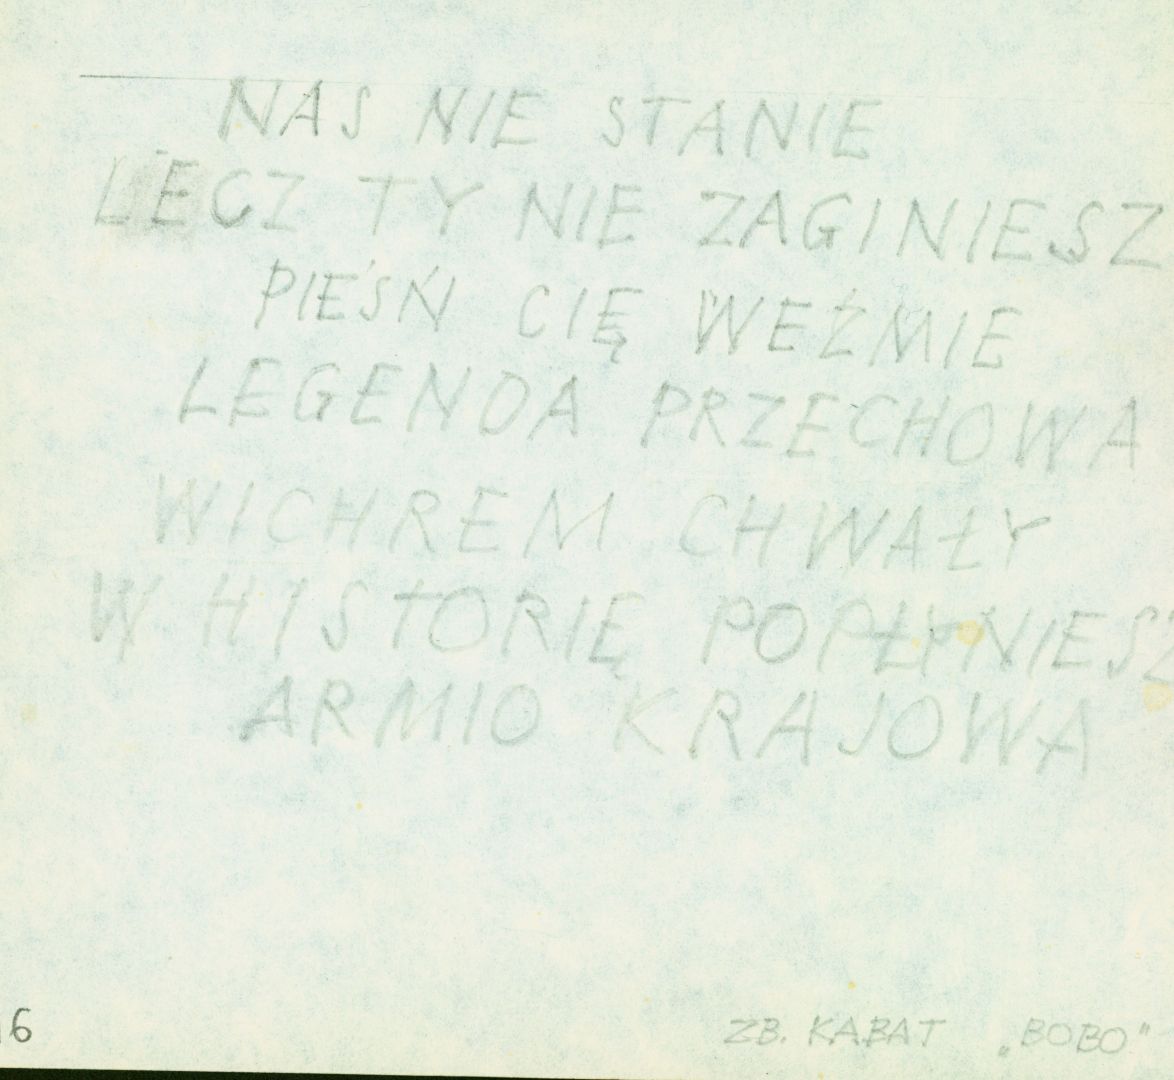 NAS NIE STANIE
LECZ TY NIE ZAGINIESZ
PIEŚŃ CIĘ WEŹMIE
LEGENDA PRZECHOWA
WICHREM CHWAŁY
W HISTORIĘ POPŁYNIESZ
ARMIO KRAJOWA
16
ZB. KABAT „BOBO"